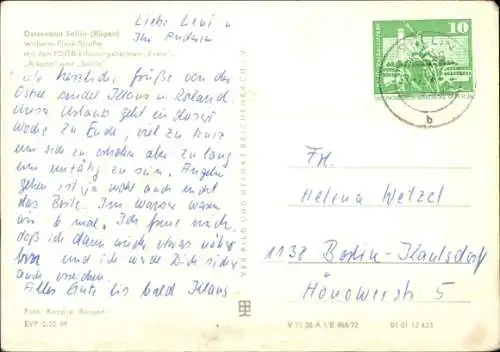 Ostseebad Sellin (Rügen)
Wilhelm-Pieck-Straße
mit den FDGB-Erholungsheimen „Freia",
„Arkona" und „Sellin"
Liebe Leni u
Ihr Anderen
herzliche Grüße von der
Ostsee sendet Klaus u Roland.
Unser Urlaub geht in dieser
Woche zu Ende, viel zu kurz
um sich zu erholen aber zu lang
um untätig zu sein. Angeln
gehen ist ja wohl auch nicht
das Beste. Im Wasser waren
wir 6 mal. Ich freue mich,
daß ich dann wieder etwas näher
bin und ich werde Dich sicher
auch
Alles Gute bis bald Klaus
Foto: Bergen
EVP 0,20 M
VEB BILD UND HEIMAT REICHENBACH I. V.
V 11 50 A 1/B 466/72
01 01 12 423
10
b
Fr.
Helena Wetzel
1138 Berlin-Kaulsdorf
Hönower str. 5